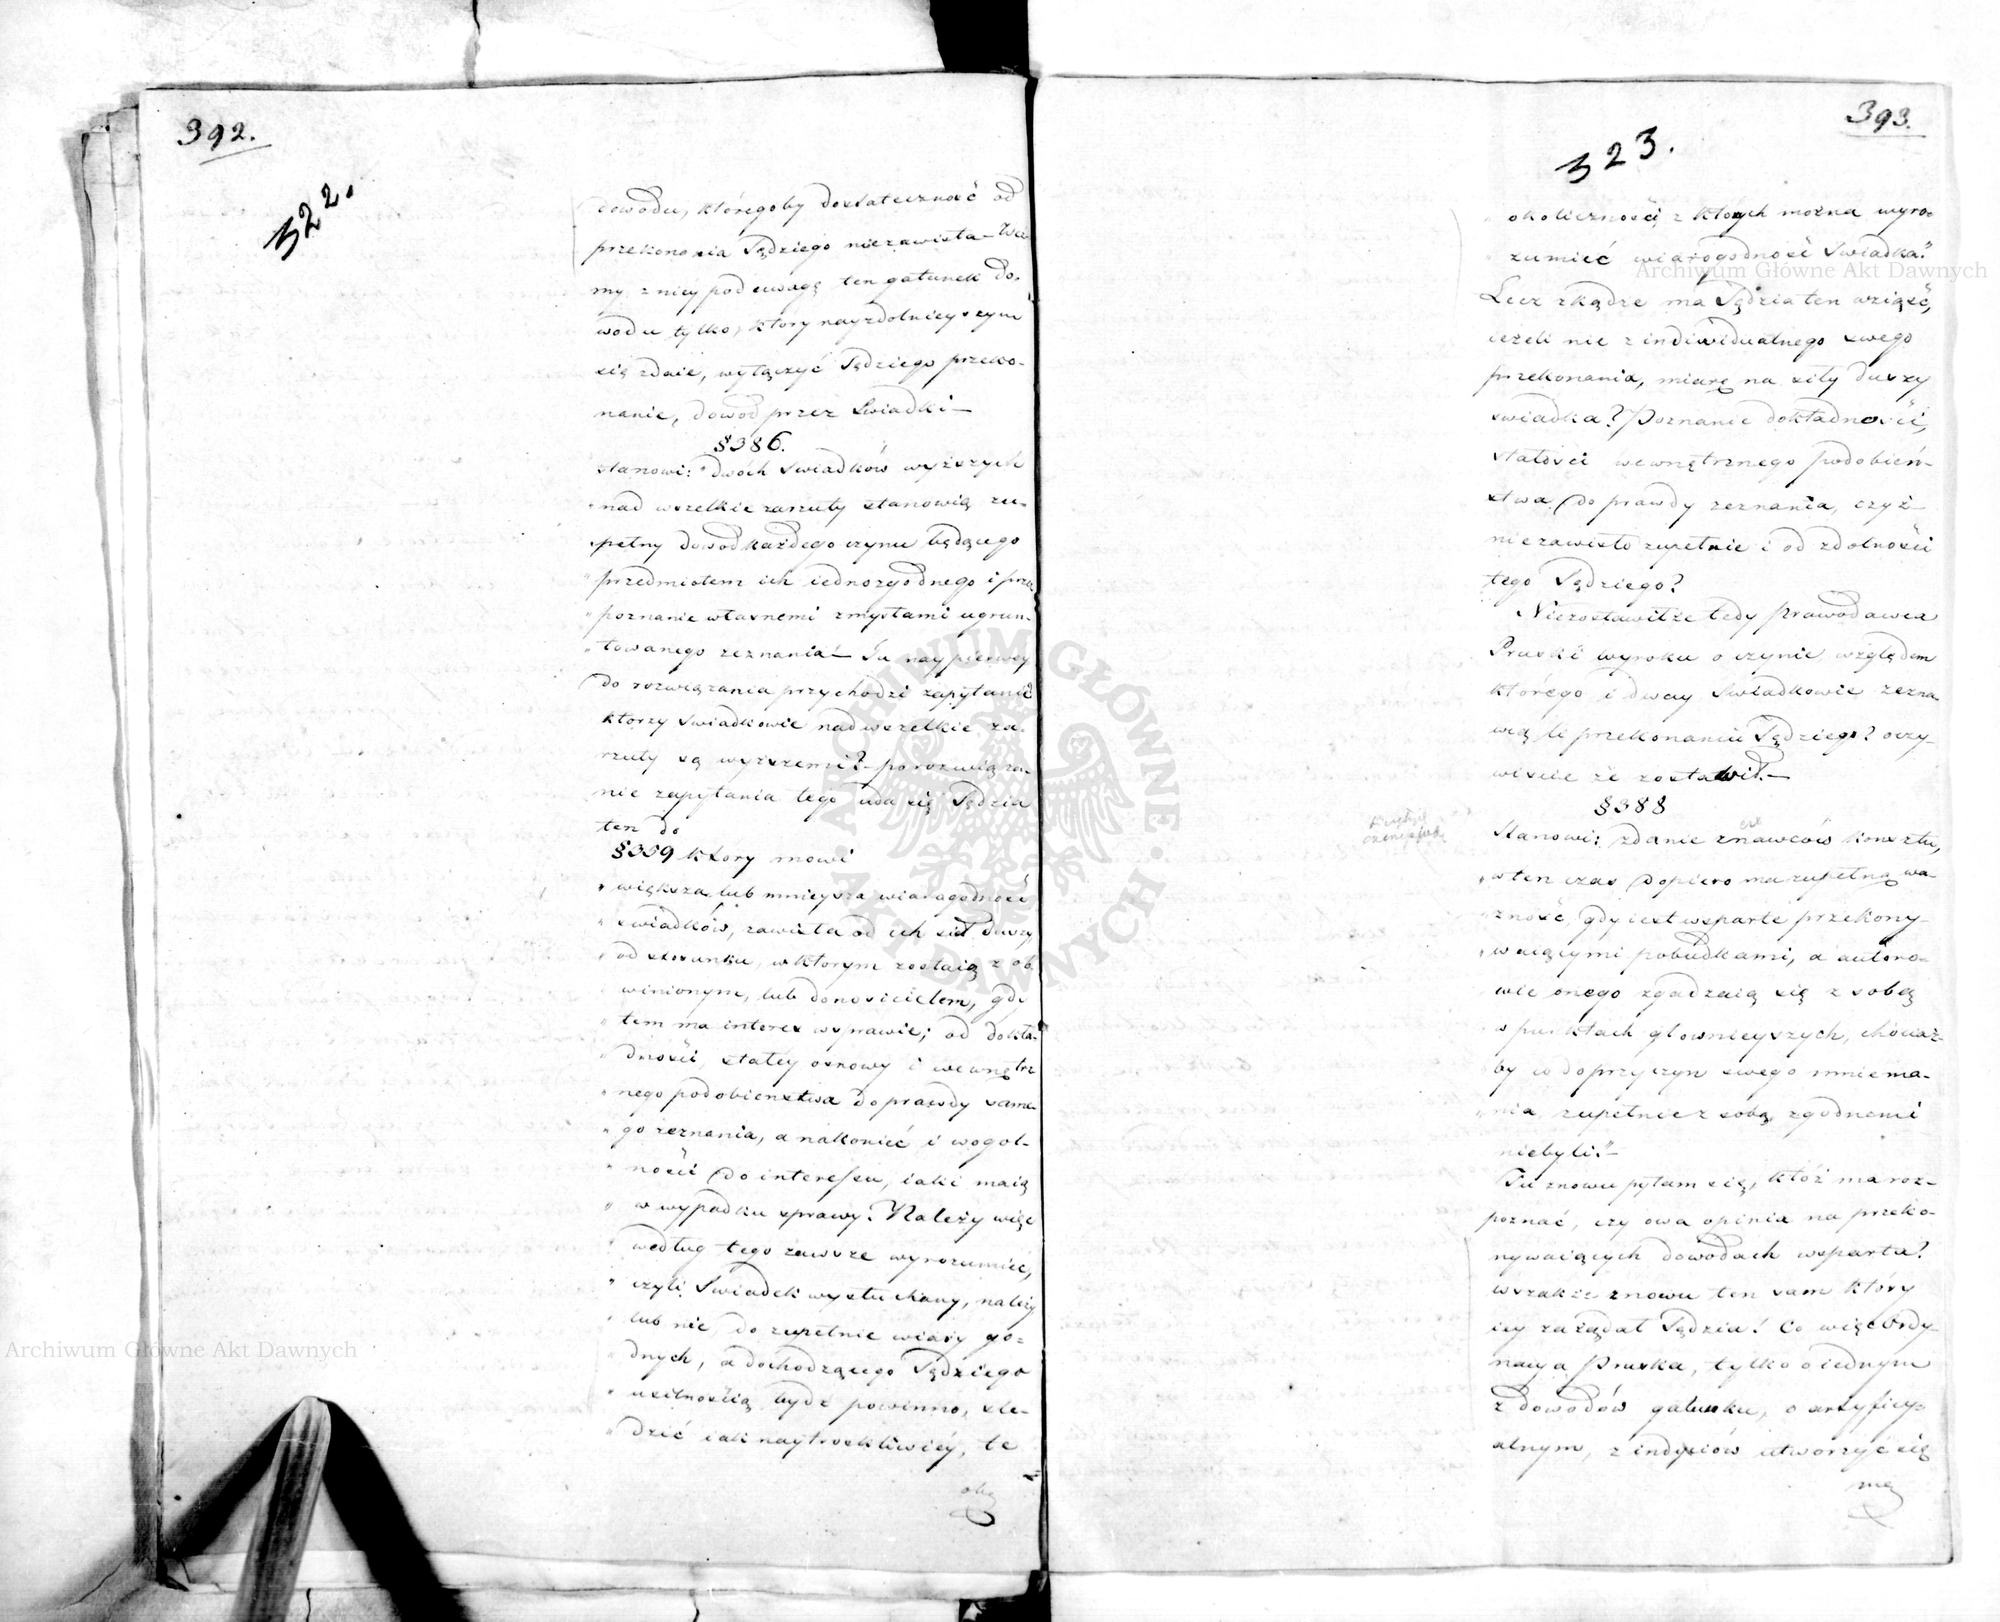 392.
322.
dowodu, któregoby dostateczność od
przekonania Sędziego niezawisła – Weź
my z niey pod uwagę ten gatunek do-
wodu tylko, ktory nayzdolnieyszym
się zdaie, wyłączyć Sędziego przeko-
nanie, dowod przez Swiadki –
§ 386.
stanowi: "dwóch swiadków wyższych
"nad wszelkie zarzuty stanowią zu-
"pełny dowod każdego czynu będącego
"przedmiotem ich iednozgodnego i prze
"poznanie własnemi zmysłami ugrun-
"towanego zeznania – Tu naypierwey
do rozwiązania przychodzi zapytanie
ktorzy swiadkowie nad wszelkie za-
rzuty są wyższemi? – po rozwiąza-
nie zapytania tego uda się Sędzia
ten do
§ 359 ktory mowi
"większa lub mnieysza wiarogodność
"swiadków, zawisła od ich sił duszy
"od stosunku, w ktorym zostaią z ob
winionym, lub donosicielem, gdy
"tem ma interes w sprawie; od dokła-
"dności, stałey osnowy i wewnętrz
"nego podobienstwa do prawdy same-
"go zeznania, a nakonieć i wogol-
"ności do interessu, iaki maią
"w wypadku sprawy. Należy więc
według tego zawsze wyrozumieć,
"czyli Swiadek wysłuchany, należy
"lub nie, do zupełnie wiary go-
"dnych, a dochodzącego Sędziego
"usilnością bydź powinno, sle-
"dzić iak naytroskliwiéy, te
oko
393.
323.
"okoliczności z których można wyro-
"zumieć wiarogodność Swiadka."
Lecz zkądże ma Sędzia ten wziąść,
ieżeli nie z indiwidualnego swego
przekonania, miarę na siły duszy
swiadka? Poznanie dokładności,
stałości wewnętrznego podobień-
stwa do prawdy zeznania, czyż
niezawisło zupełnie i od zdolności
tego Sędziego?
Niezostawilże tedy prawodawca
Pruski wyroku o czynie względem
którego i dway Swiadkowie zezna
wią li przekonaniu Sędziego? oczy-
wiscie że zostawił. –
§ 388
Stanowi: zdanie znawców konsztu,
"w ten czas dopiero ma zupełną wa
"żność, gdy iest wsparte przekony-
"waiącymi pobudkami, a autoro-
wie onego zgadzaią się z sobą
w punktach głownieyszych, chociaż-
by co do przyczyn swego mniema-
"nia zupełnie z sobą zgodnemi
niebyli." –
Tu znowu pytam się, któż ma roz-
poznać, czy owa opinia na przeko-
nywaiących dowodach wsparta?
wszakże znowu ten sam który
iey zażądał Sędzia! Co więc Ordy-
nacya Pruska, tylko o iednym
z dowodów gatunku, o artyficy-
alnym, z indyciów utworzyć się